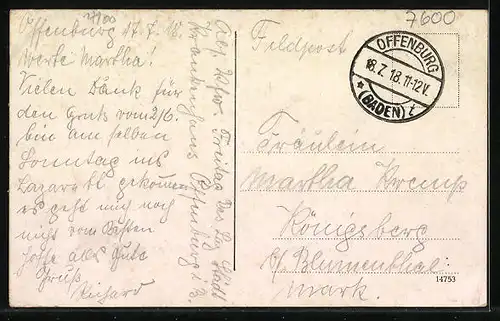 7700
7600
Offenburg 17.7.18.
Werte Martha!
Vielen Dank für
den Gruß vom 2/6.
bin am selben
Sonntag ins
Lazarett gekommen
es geht mich noch
nicht vom Besten
hoffe als Gute
Gruß
Richard
Abs. Freitag Res Laz Städl
Krankenhaus Offenburg i/B.
Feldpost
OFFENBURG
18.7.18.11-12V.
* (BADEN) i
Fräulein
Martha Kremp
Königsberg
b/ Blumenthal.
Mark.
14753